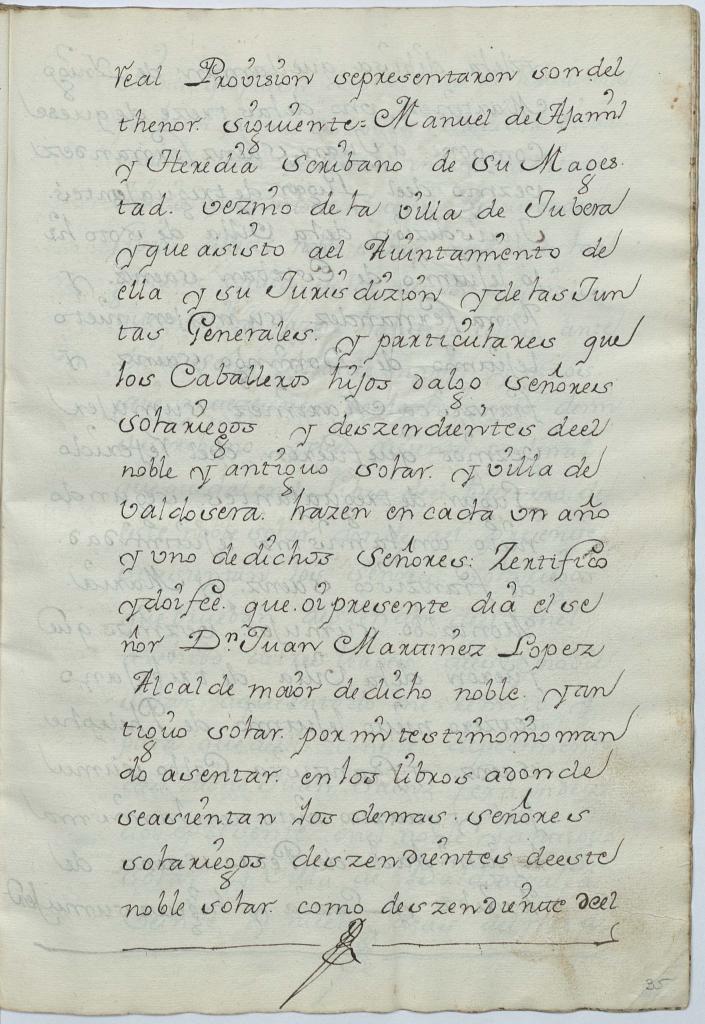 real Provision sepresentaron son del
thenor. siguiente = Manuel de Ajamil
y Heredia scribano de su Mages-
tad. vezino de la villa de Jubera
y que asisto ael Aiuntamiento de
ella y su Jurisdizion y de las Jun
tas Generales. y particulares que
los Caballeros hijos dalgo señores
solariegos y deszendientes deel
noble y antiguo solar. y villa de
valdosera. hazen en cada un año
y uno de dichos señores: Zertifico
y doi fee. que. oi presente dia el se
ñor Dn. Juan Martinez Lopez
Alcalde maior de dicho noble. y an
tiguo solar. por mi testimonio man
do asentar. en los libros adonde
seasientan los demas. señores
solariegos deszendientes deeste
noble solar. como deszendiente deel
35